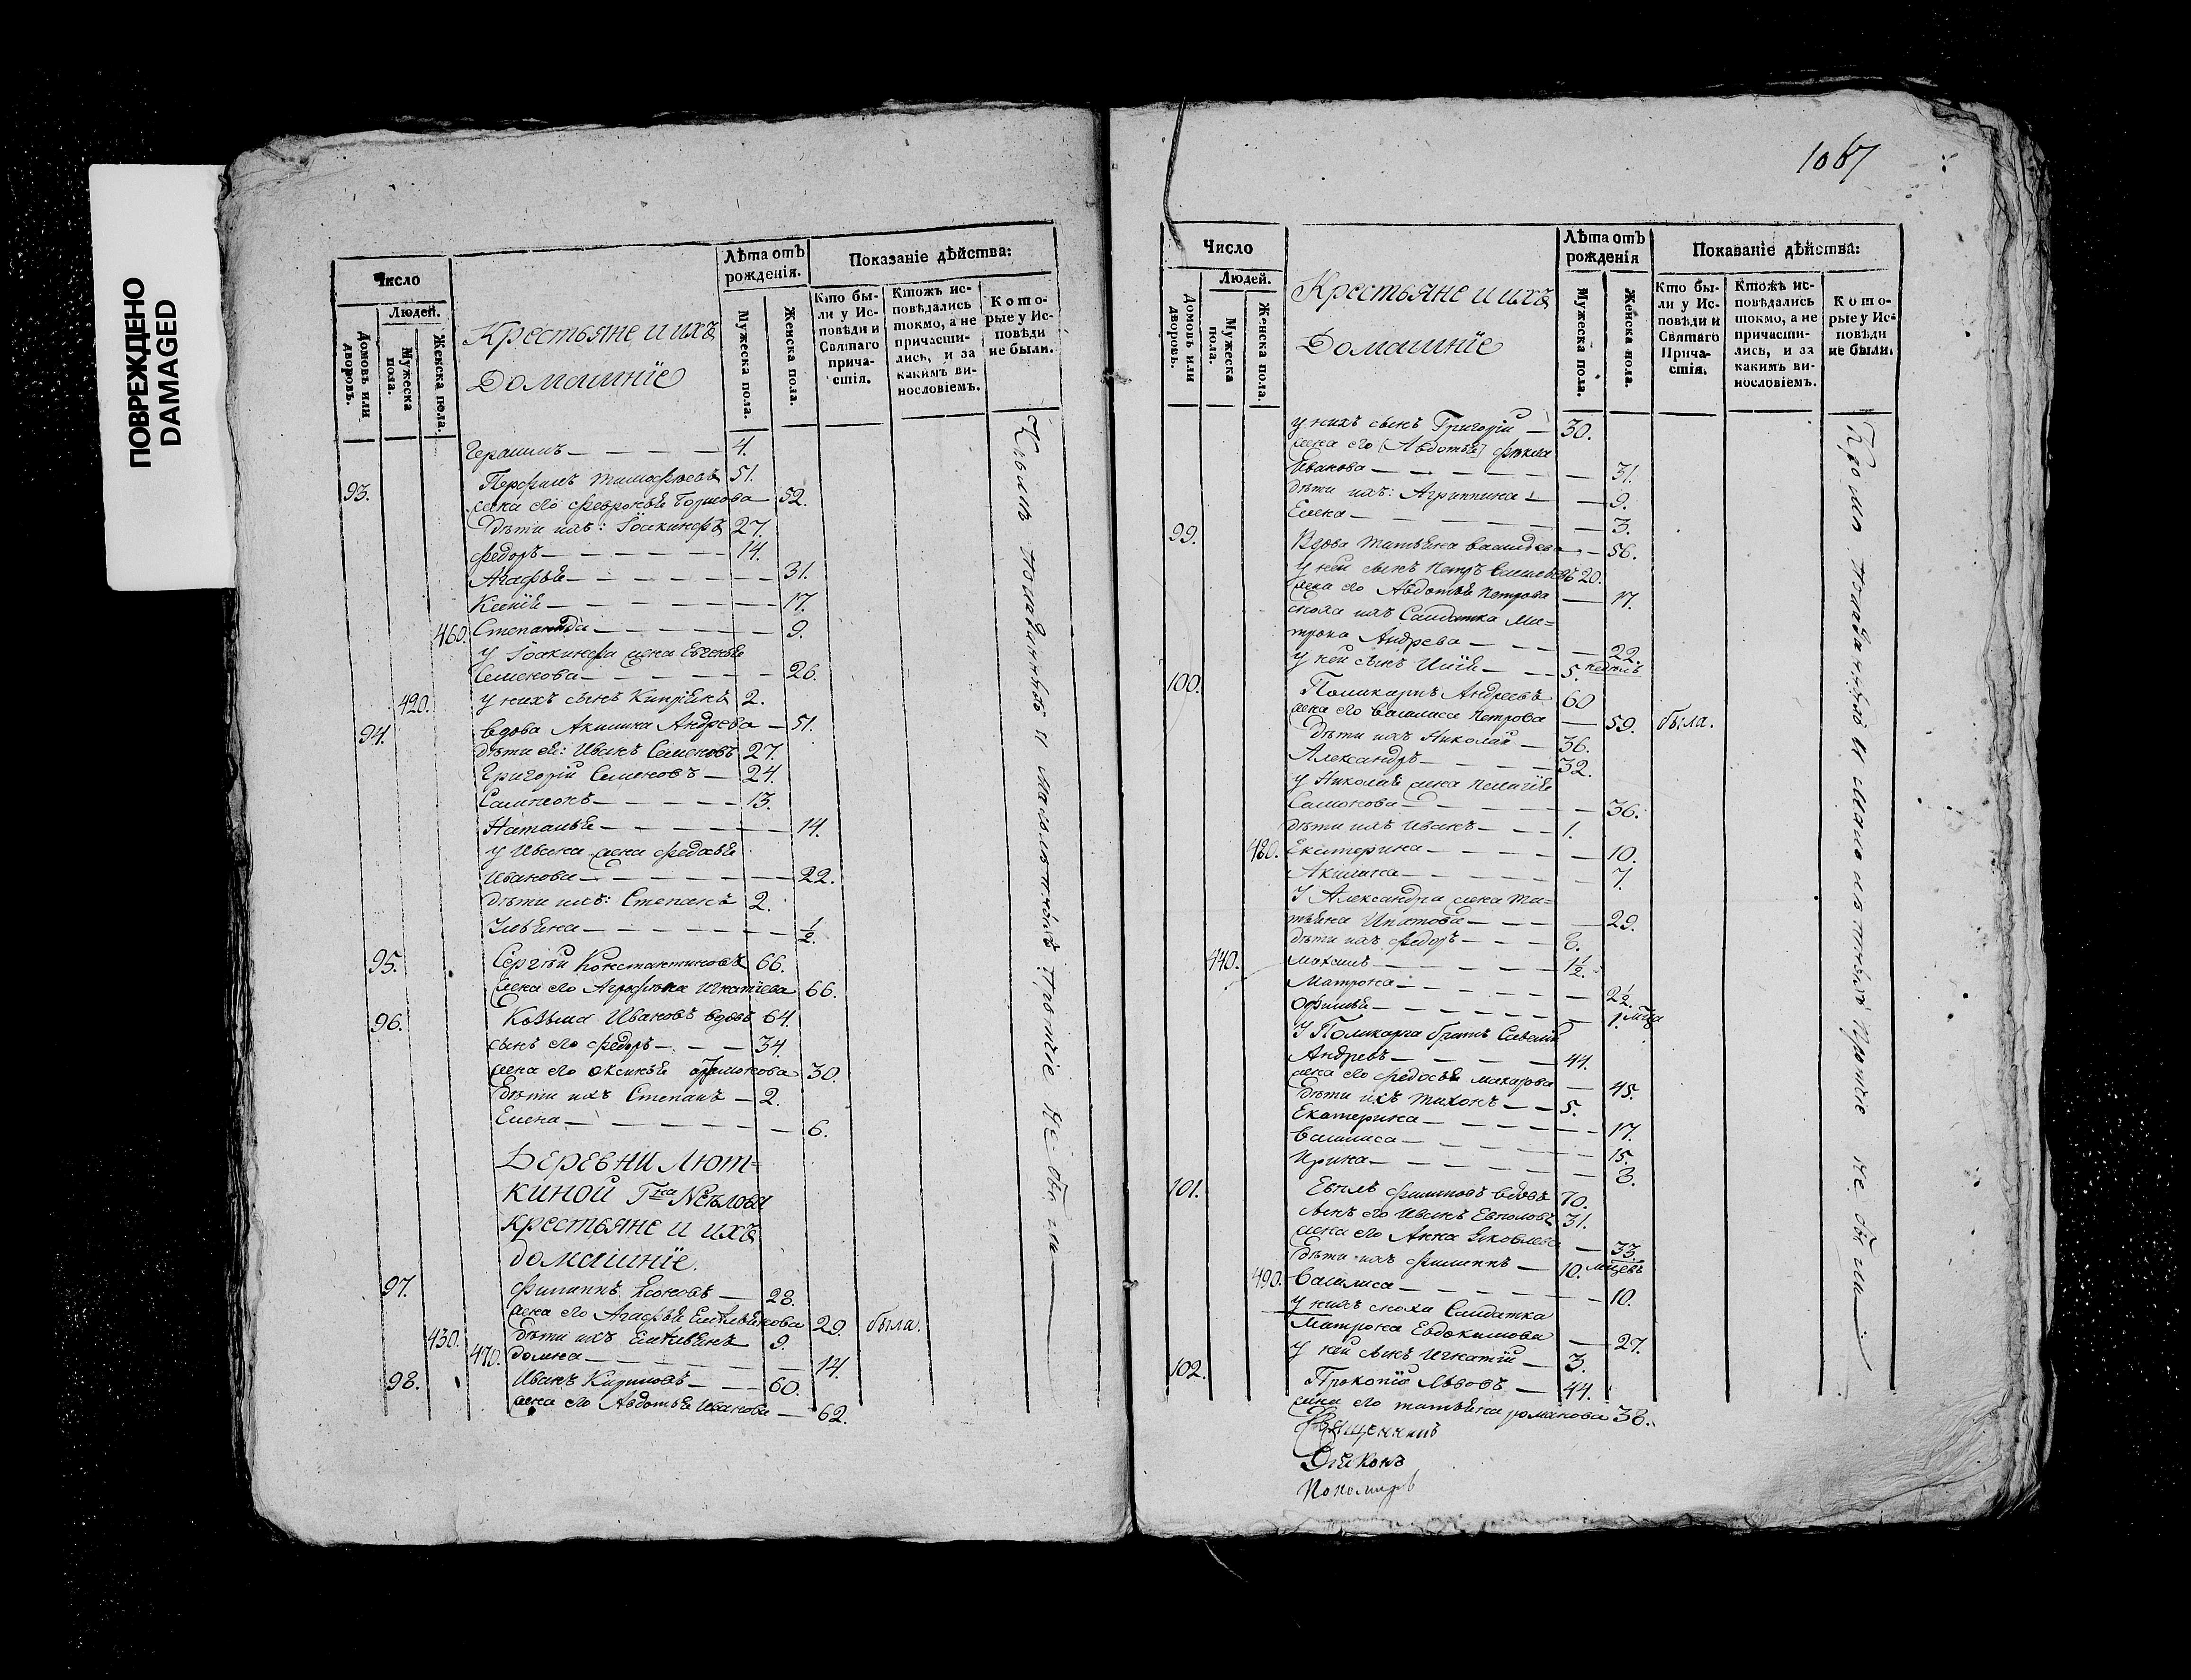 ПОВРЕЖДЕНО
DAMAGED
Число
Людей.
Домовъ или дворовъ.
Мужеска пола.
Женска пола.
Крестьяне и ихъ
Домашнїе
Лѣта отъ рожденія.
Мужеска пола.
Женска пола.
Показаніе дѣйства:
Кто бы-
ли у Ис-
повѣди и
Святаго
прича-
стія.
Ктожъ ис-
повѣдались
токмо, а не
причасти-
лись, и за
какимъ ви-
нословіемъ.
Кото-
рые у Ис-
повѣди
не были.
Герасимъ 4.
93. Перфилъ Тимофѣевъ 51.
жена его Февронья 52.
Дѣти ихъ: Іоакинфъ 27.
Федоръ 14.
Агафья 31.
Ксенія 17.
460. Степанида 9.
у Іоакинфа жена Евгенья
Семенова 26.
420. у нихъ сынъ Кипріянъ 2.
94. вдова Акилина Андрева 51.
дѣти ея: Иванъ Семеновъ 27.
Григорій Семеновъ 24.
Сампсонъ 13.
Наталья 14.
у Ивана жена Федосья
Иванова 22.
дѣти ихъ: Степанъ 2.
½.
95. Сергѣй Константиновъ 66.
жена его Агрофѣна Игнатіева 66.
96. Козьма Ивановъ вдовъ 64.
сынъ его Федоръ 34.
жена его Оксинья 30.
дѣти ихъ Степанъ 2.
Елена 6.
Деревни Лют-
киной Гна Неѣлова
крестьяне и ихъ
домашніе.
97. Филиппъ 28.
жена его Агафья Емельянова 29. была.
430. дѣти ихъ Емельянъ 9.
470. Домна 14.
98. Иванъ Кириловъ 60.
жена его Авдотья Иванова 62.
Кромѣ и малолѣтнихъ Протчіе не были
1067
Число
Людей.
Домовъ или дворовъ.
Мужеска пола.
Женска пола.
Крестьяне и ихъ
Домашнїе
Лѣта отъ рожденія
Мужеска пола.
Женска пола.
Показаніе дѣйства:
Кто бы-
ли у Ис-
повѣди и
Святаго
Прича-
стія.
Ктожъ ис-
повѣдались
токмо, а не
причасти-
лись, и за
какимъ ви-
нословіемъ.
Кото-
рые у Ис-
повѣди
не были.
у нихъ сынъ Григорій 30.
жена его (Авдотья) Фекла
Иванова 31.
дѣти ихъ: Агриппина 9.
Елена 3.
99. Вдова Татьяна Васильева 56.
у ней сынъ Петръ 20.
жена его Авдотья Петрова 17.
сноха ихъ Салдатка Ма=
трона Андрева 22.
у ней сынъ Илія 5. недѣль
100. Поликарпъ Андреевъ 60
жена его Василиса Петрова 59. была.
Дѣти ихъ Николай 36.
Александръ 32.
у Николая жена Пелагія
36.
дѣти ихъ Иванъ 1.
480. Екатерина 10.
Акилина 7.
У Александра жена Та=
тьяна Ипатова 29.
дѣти ихъ Федоръ 8.
440. 1½.
Матрона 2½.
1. мца
У Поликарпа братъ Савелій
Андревъ 44.
жена его Федосья Макарова 45.
дѣти ихъ Тихонъ 5.
Екатерина 17.
Василиса 15.
Ирина 8.
101. Филиповъ вдовъ 70.
сынъ его Иванъ 31.
жена его Анна Яковлева 33.
Дѣти ихъ Филиппъ 10. мцевъ
490. Василиса 10.
у нихъ сноха Салдатка
Матрона Евдокимова 27.
у ней сынъ Игнатій 3.
102. Прокопій Львовъ 44.
жена его Татьяна Романова 38.
Кромѣ и малолѣтнихъ Протчіе не были
Священникъ
Діяконъ
Пономарь